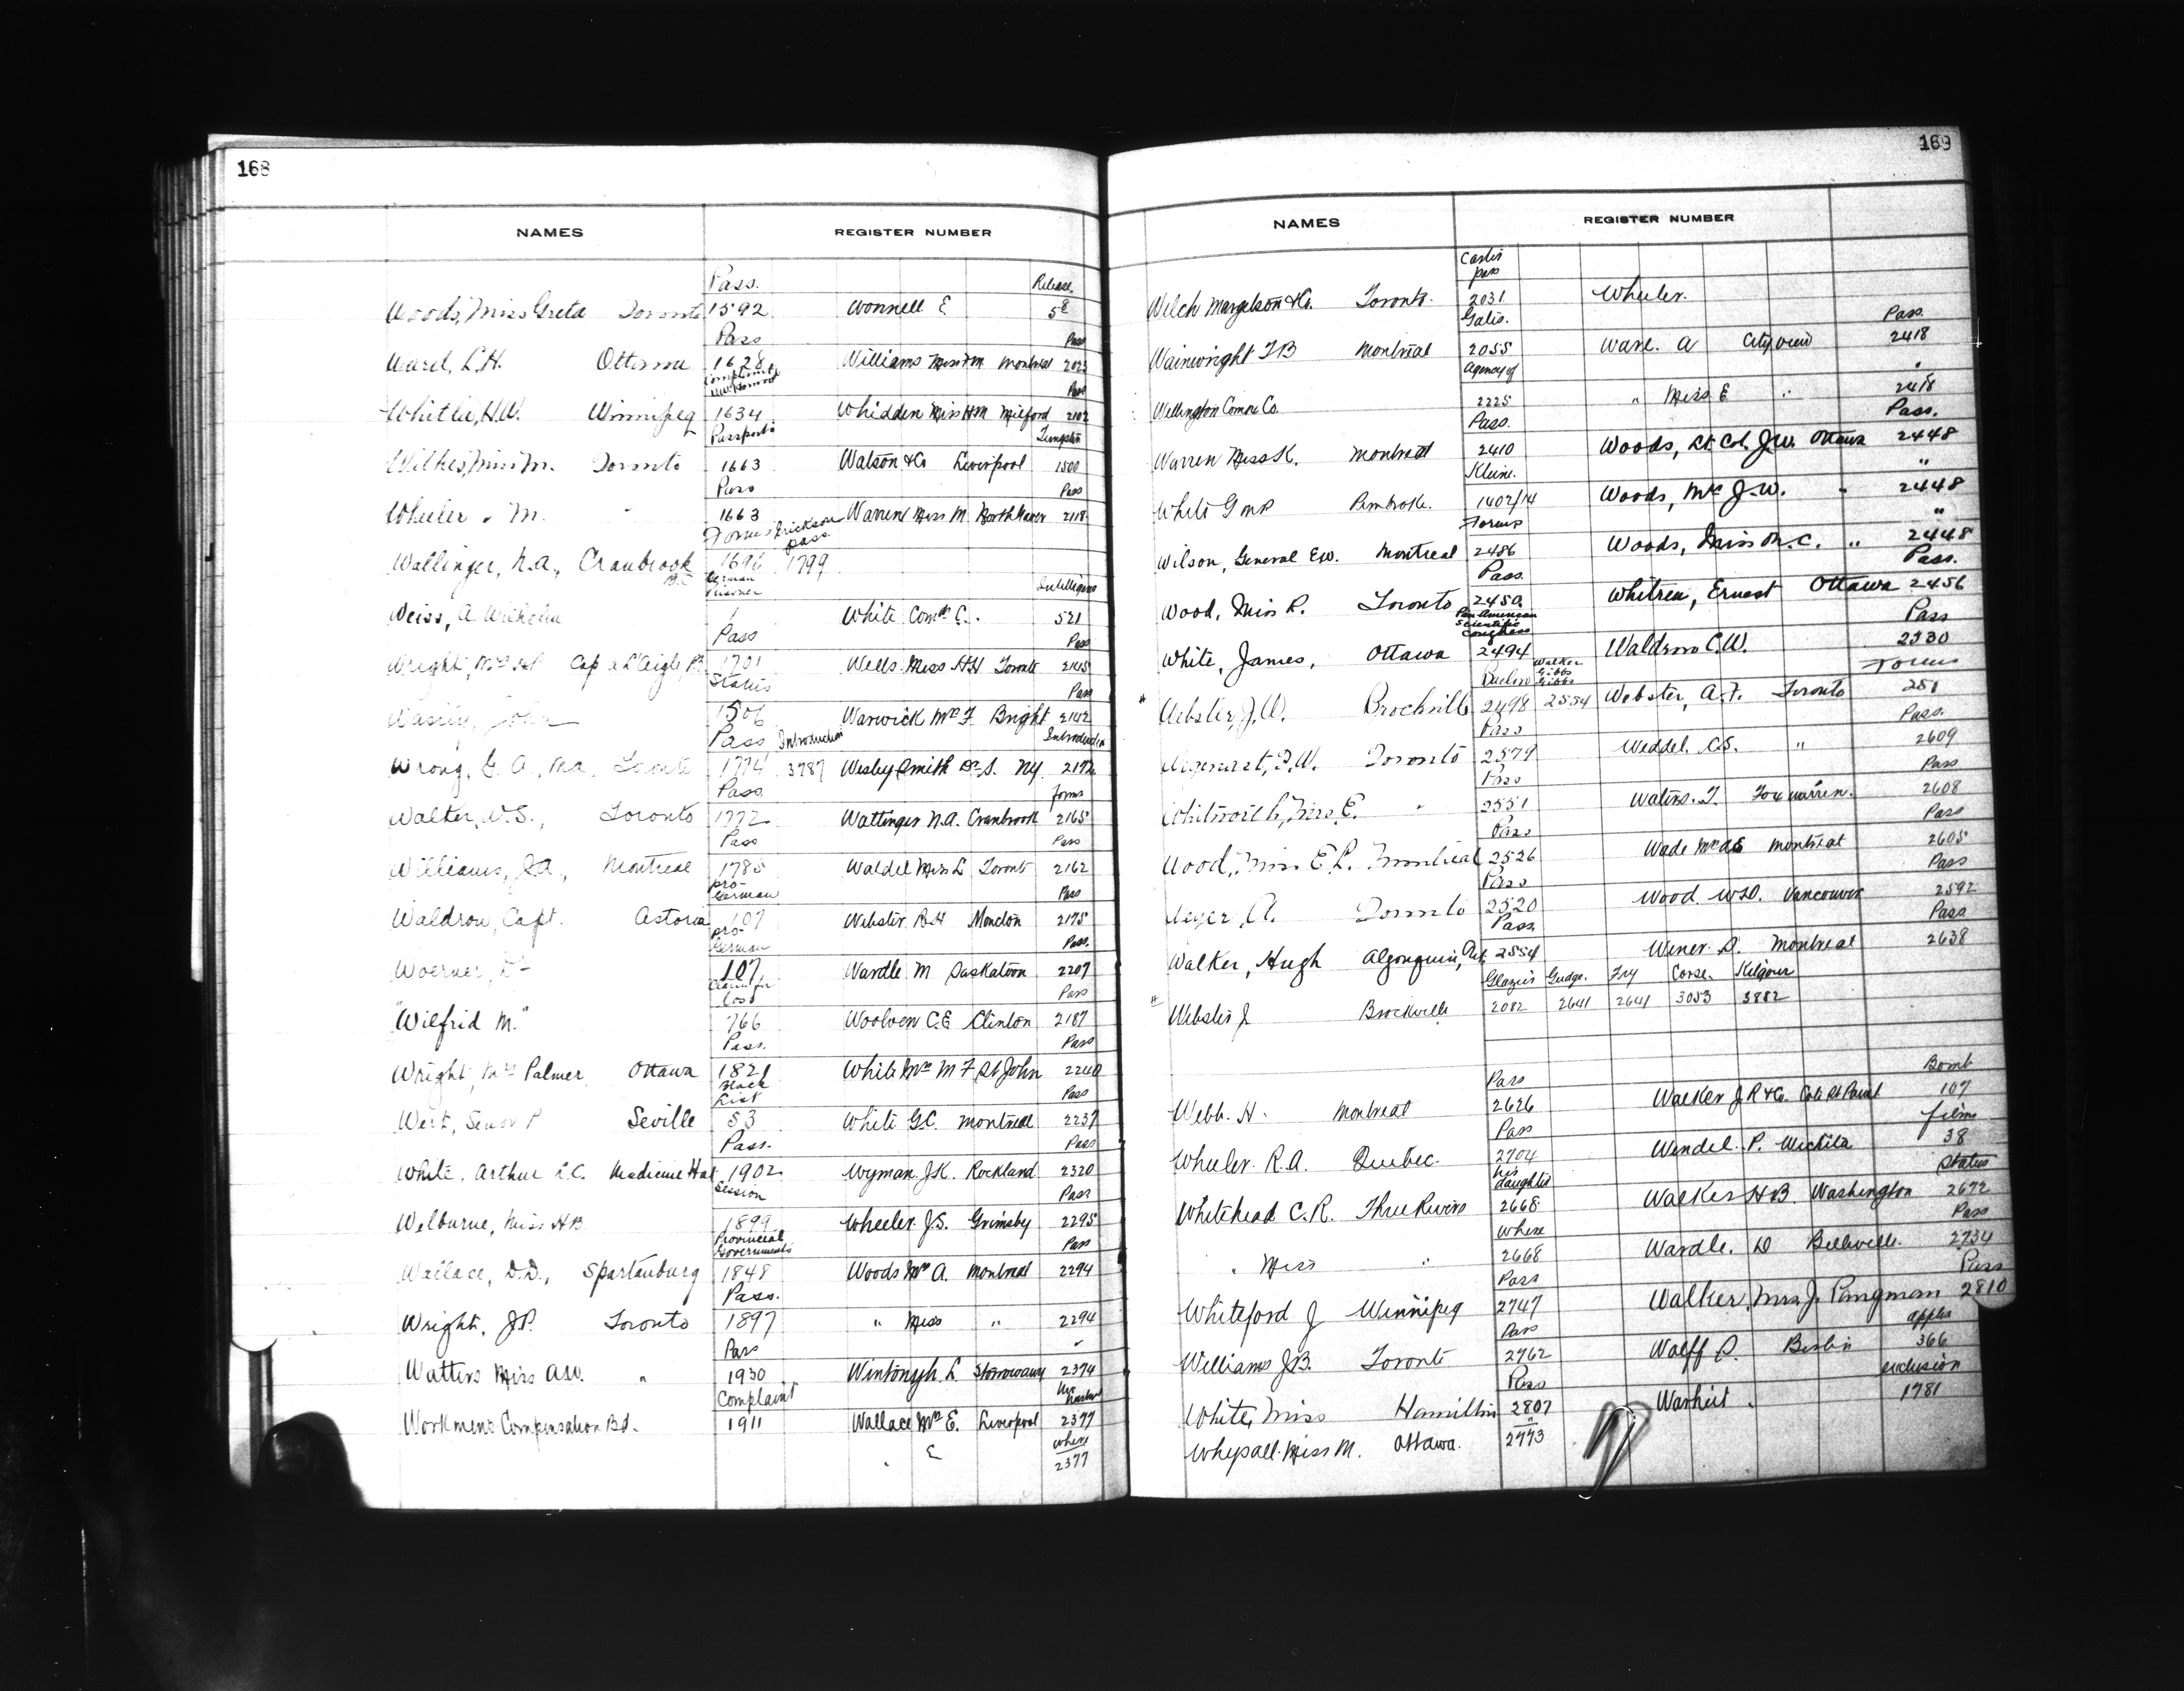 168
NAMES REGISTER NUMBER
Pass. Release
Woods, Miss Greta Toronto 1592 Wonnell E 58
Pass Pass
Ward, L.H. Ottawa 1628 Williams Miss M Montreal 2023
Complaint Pass
Whitla, H.W. Winnipeg 1634 Whidden Miss HM Milford 2102
Passports Tungsten
Wilkes, Miss M. Toronto 1663 Watson & Co Liverpool 1500
Pass Pass
Wheeler " M. " 1663 Warren Miss M. 2118
Forms Erickson pass.
Wallinger, N.A., Cranbrook B.C. 1696 1799
German Prisoner Intelligence
Weiss, A. Wilhelm 1 White Comr C. 521
Pass Pass
Wright, Mrs Cap a L'Aigle P.Q. 1701 Wells Miss HH Toronto 2115
Status Pass
John 1506 Warwick Mrs F. Bright 2142
Pass Introduction Introduction
Wrong, G. A., M.A. Toronto 1774 3787 Wesley Smith Dr. S. NY. 2172
Pass. forms
Walter, W.S., Toronto 1772 Wattinger N.A. Cranbrook 2165
Pass Pass
Williams, J.A., Montreal 1785 Waldel Miss L Toronto 2162
pro-German Pass
Waldron, Capt. Astoria 107 Webster R.H Moncton 2175
pro-German Pass.
Woerner, Dr 107. Wardle M Saskatoon 2207
Claim for loss Pass
"Wilfrid M." 766 Woolven C.E Clinton 2187
Pass. Pass
Wright, Mrs Palmer Ottawa 1821 White Mrs M F St John 2240
Black List Pass
West, Senor P Seville 53 White G.C. Montreal 2237
Pass. Pass
White, Arthur L.C. Medicine Hat 1902 Wyman J.K. Rockland 2320
Session Pass
Welburne, Miss H B 1899 Wheeler J.S. Grimsby 2295
Provincial Governments Pass
Wallace, D.D., Spartanburg 1848 Woods Mrs A. Montreal 2294
Pass.
Wright, J.P. Toronto 1897 " Miss " 2294
Pass "
Watters Miss A.W. " 1930 Wintonyh. L. Stornoway 2374
Complaint
Workmens Compensation Bd. 1911 Wallace Mrs E. Liverpool 2377
where
" E 2377
169
NAMES REGISTER NUMBER
pass
Welch Margetson & Co. Toronto. 2031 Wheeler.
Galis. Pass.
Wainwright F B Montreal 2055 Ware. A City view 2418
Agency of "
Wellington Comre Co. 2225 " Miss E " 2418
Pass. Pass.
Warren Miss K. Montreal 2410 Woods, Lt. Col. J.W. Ottawa 2448
Kleine. "
White G Pembroke. 1402/14 Woods, Mrs J.W. " 2448
Forms "
Wilson, General E.W. Montreal 2486 Woods, Miss M.C. " 2448
Pass. Pass.
Wood, Miss R. Toronto 2450 Whitren, Ernest Ottawa 2456
Pan American Scientific Congress Pass
White, James, Ottawa 2494 Waldron C.W. 2330
Walker Gibbs Gibbs Forms
Webster, J.W. Brockville 2498 2554 Webster, A.F. Toronto 251
Pass Pass.
Toronto 2579 Weddel. C.S. " 2609
Pass Pass
Whitworth, Miss E. " 2551 Waters. T. Fox Warren. 2608
Pass Pass
Wood, Miss E.L. Montreal 2526 Wade Montreal 2605
Pass Pass
Weyer, A. Toronto 2520 Wood W.D. Vancouver 2592
Pass. Pass
Walker, Hugh Algonquin, Ont. 2554 Wener. S. Montreal 2638
Glazier Gudge. Fry Corse. Kilgour
Webster J Brockville 2082 2641 2641 3053 3882
Pass Bomb
Webb. H. Montreal 2626 Walker J R & Co. Cote St Paul 107
Pass films
Wheeler R.A. Quebec. 2704 Wendel P. Wichita 38
his daughter Status
Whitehead C. R. Three Rivers 2668 Walker H B. Washington 2672
Where Pass
" Miss " 2668 Wardle. D Belleville. 2734
Pass Pass
Whiteford J Winnipeg 2747 Walker, Mrs J. Pangman 2810
Pass apples
Williams J.B. Toronto 2762 Wolff S. Berlin 366
Pass exclusion
White, Miss Hamilton 2807 Warheit. 1781
"
Whysall Miss M. Ottawa. 2773